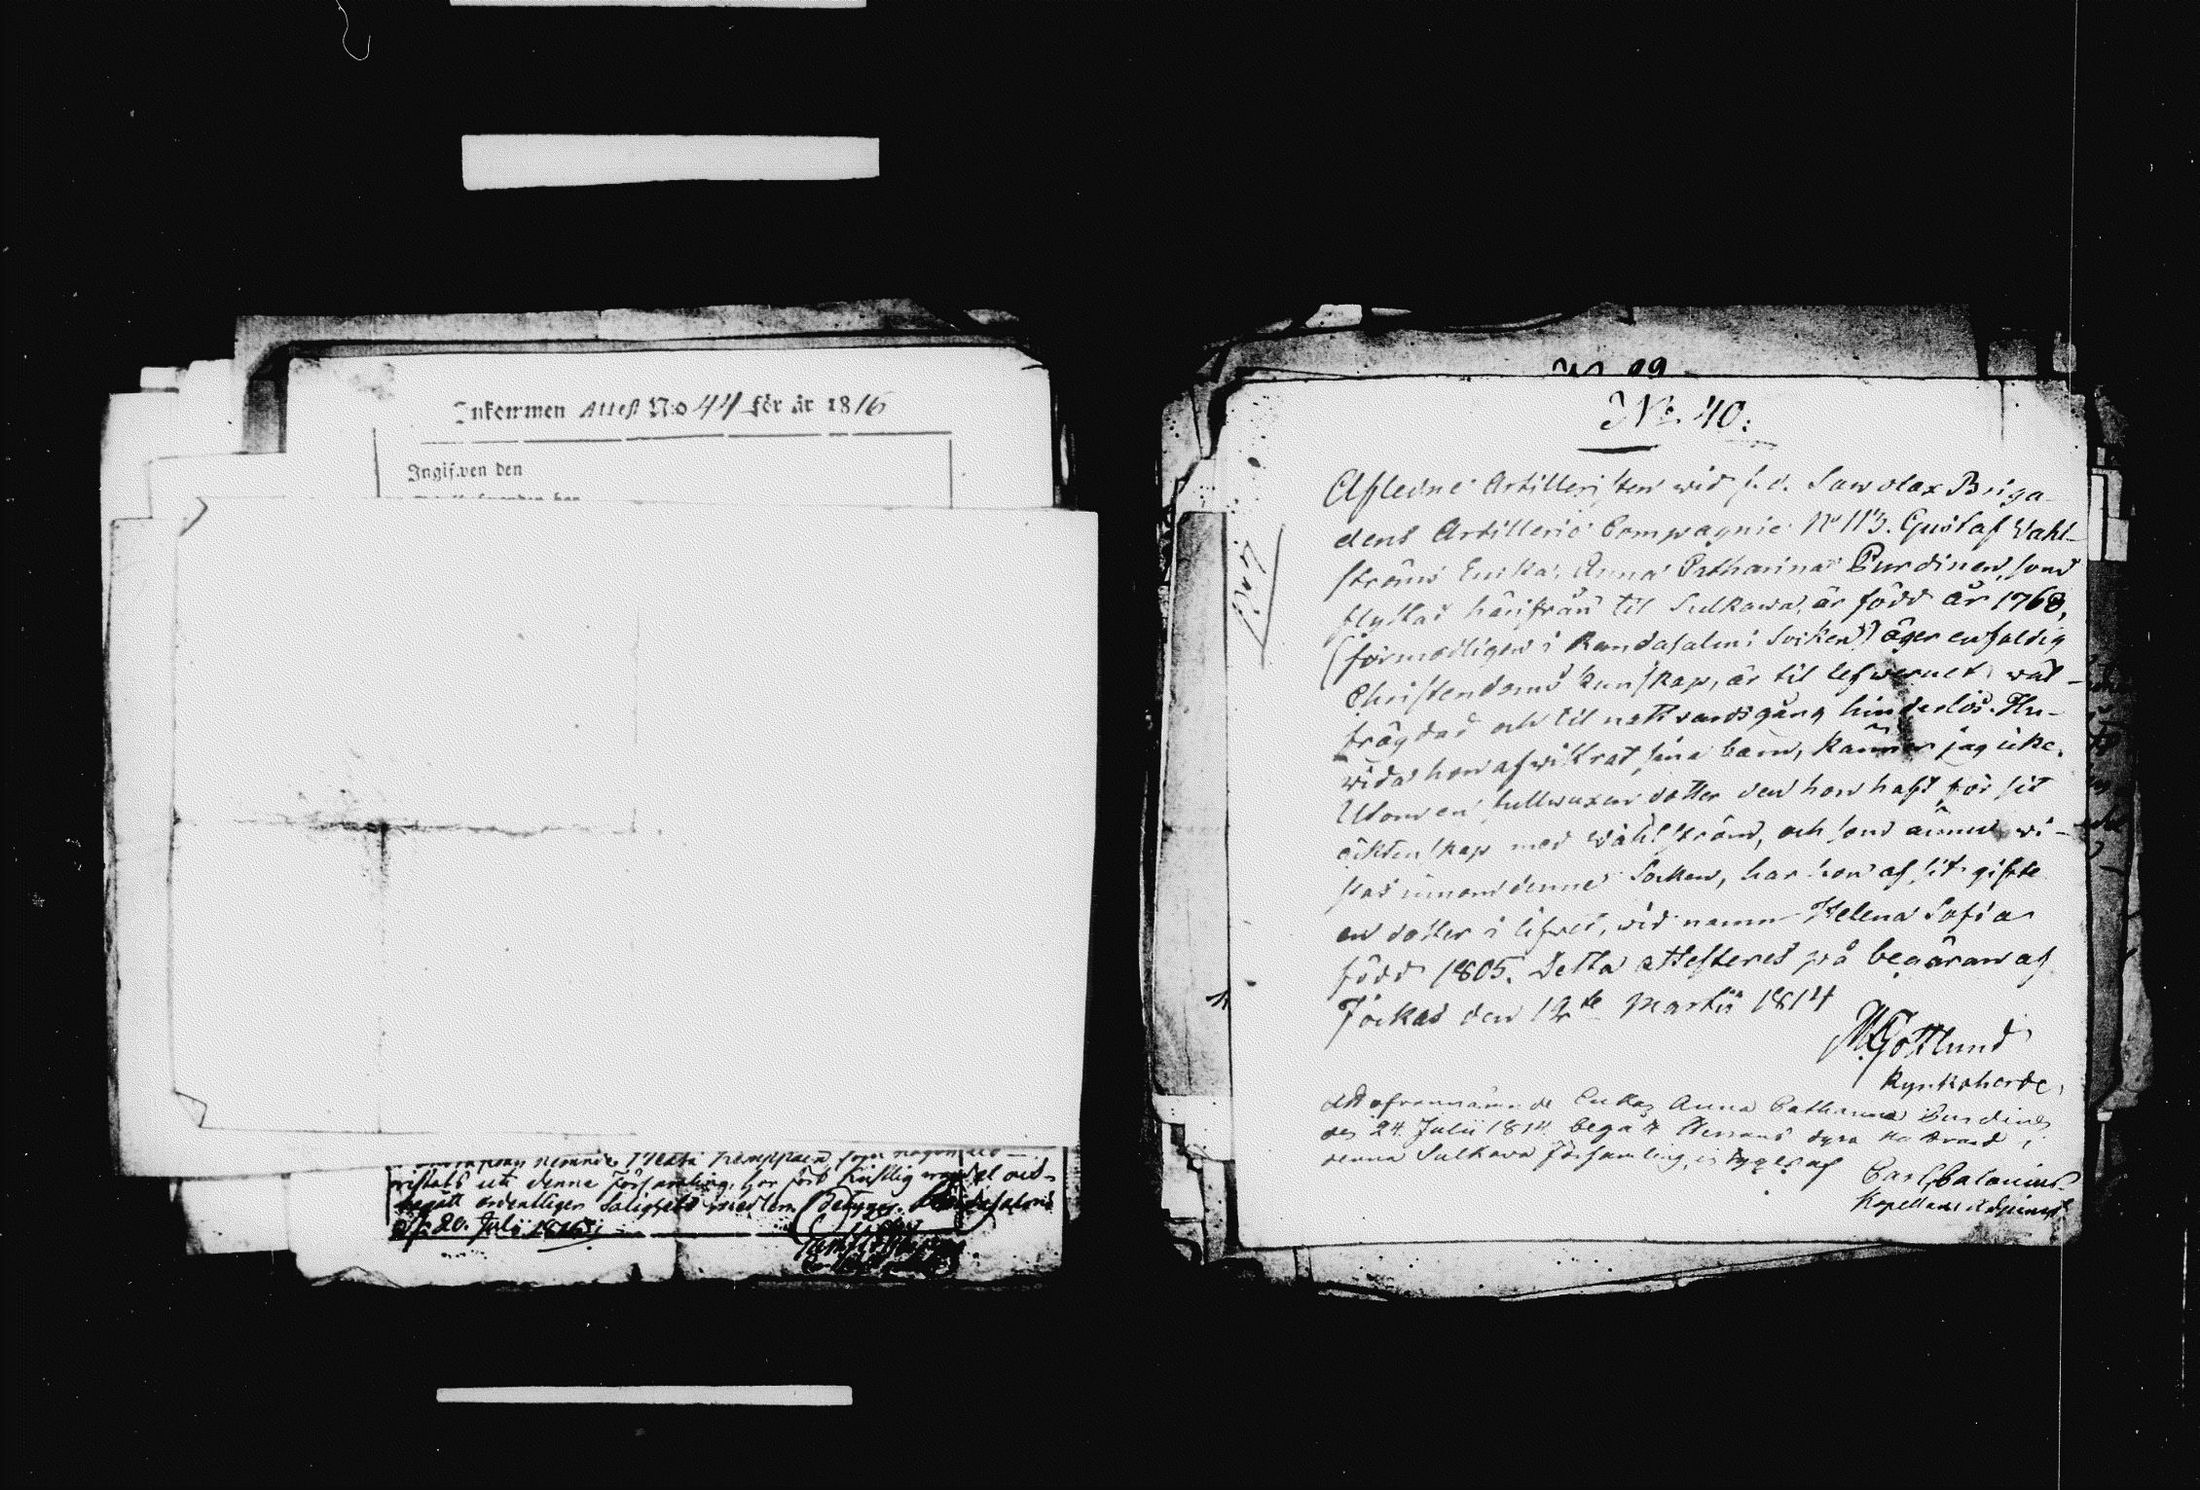 Inkommen Attest N:o 44 för år 1816
Ingifven den
nämnde
vistats uti denne Församling, har fört Kristlig vandel och
begått ordentligen Salighets medlen. Betygar.
d. 20. Julii 1816
No 40.
Afledne Artilleristen wid f. d. Sawolax Briga-
dens Artillerie Compagnie No 113. Gustaf Wahl-
ströms Enka, Anna Catharina Purdinen, som
flyttar härifrån til Sulkawa, är född år 1768,
(förmodligen i Randasalmi Socken) äger enfaldig
Christendoms kunskap, är til lefwernet wäl-
frägdad och til nattvardsgång hinderlös. Hu-
ruvida hon afwittrat sina barn, känner jag icke.
Utom en fullwuxen dotter den hon haft för sit
äktenskap med Wahlström, och som ännu wi-
stas innom denne Socken, har hon af sit gifte
en dotter i lifwet, wid namn Helena Sofia
född 1805. Detta attesteres på begäran af
Jockas den 12te Martii 1814
M. Gottlund
Kyrkoherde.
Att ofvannämnde Enka Anna Catharina Purdinen
den 24 Julii 1814 begått Herrans dyra Nattvard i
denna Sulkava Församling, betygas af
Carl Calonius
Kapellans Adjunct